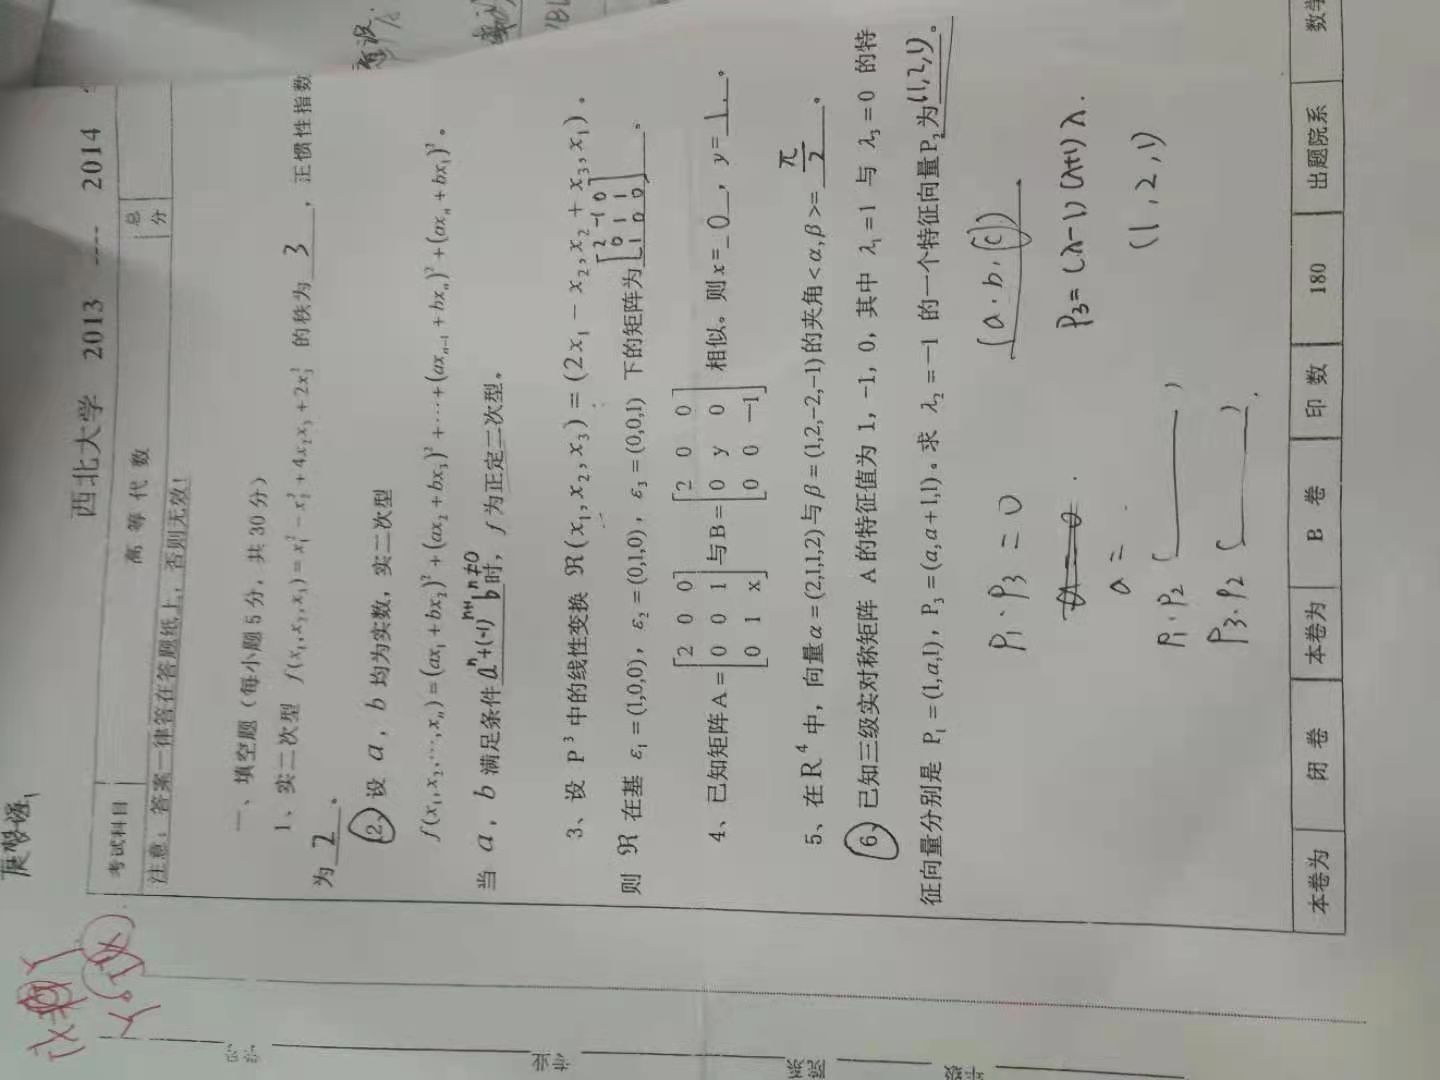 西北大学 2013 ---- 2014
考试科目 高等代数 总分
注意：答案一律答在答题纸上，否则无效！
一、填空题（每小题5分，共30分）
1、实二次型 f(x₁,x₂,x₃)=x₁²−x₂²+4x₂x₃+2x₃² 的秩为 3 ，正惯性指数
为 2 。
2、设 a，b 均为实数，实二次型
f(x₁,x₂,⋯,xₙ)=(ax₁+bx₂)²+(ax₂+bx₃)²+⋯+(axₙ₋₁+bxₙ)²+(axₙ+bx₁)² 。
当 a，b 满足条件 aⁿ+(-1)ⁿ⁺¹bⁿ≠0 时，f 为正定二次型。
3、设 P³ 中的线性变换 ℜ(x₁,x₂,x₃)=(2x₁−x₂,x₂+x₃,x₁) 。
则 ℜ 在基 ε₁=(1,0,0)，ε₂=(0,1,0)，ε₃=(0,0,1) 下的矩阵为 [2 -1 0
0 1 1
1 0 0] 。
4、已知矩阵A=[2 0 0
0 0 1
0 1 x]与B=[2 0 0
0 y 0
0 0 −1] 相似。则x= 0 ，y= 1 。
5、在R⁴中，向量α=(2,1,1,2)与β=(1,2,−2,−1)的夹角<α,β>= π/2 。
6、已知三级实对称矩阵 A的特征值为 1，-1，0，其中 λ₁=1 与 λ₃=0 的特
征向量分别是 P₁=(1,a,1)，P₃=(a,a+1,1)。求 λ₂=−1 的一个特征向量P₂为 (1,2,1) 。
P₁·P₃=0 (a.b.c)
a=0 .
P₃=(λ-1)(λ+1)λ.
a=
(1,2,1)
P₁·P₂ ( )
P₃·P₂ ( )
本卷为 闭卷 本卷为 B 卷 印数 180 出题院系 数学
学号
专业
院系
年级